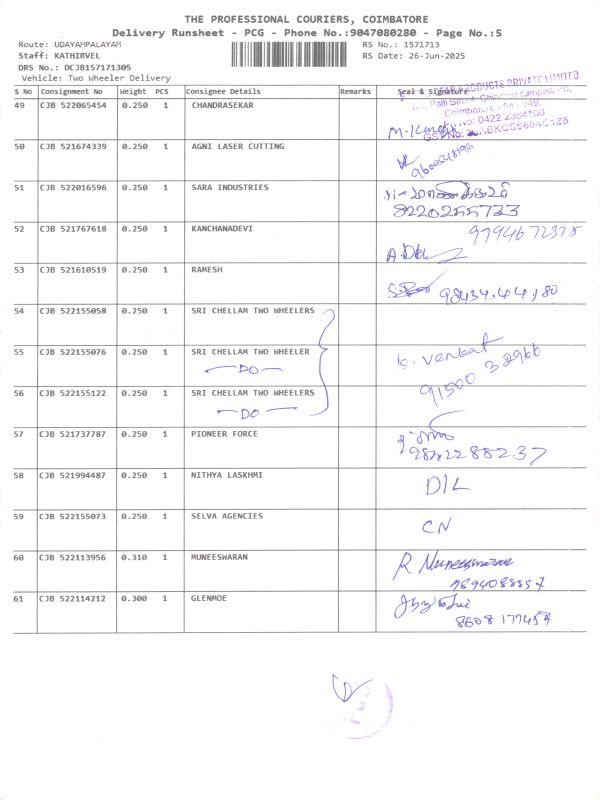 THE PROFESSIONAL COURIERS, COIMBATORE
Delivery Runsheet - PCG - Phone No.:9047080280 - Page No.:5
Route: UDAYAMPALAYAM
RS No.: 1571713
Staff: KATHIRVEL
RS Date: 26-Jun-2025
DRS No.: DCJB157171305
Vehicle: Two Wheeler Delivery
S No Consignment No Weight PCS Consignee Details Remarks Seal & Signature
PRODUCTS PRIVATE LIMITED
Coimbatore - 641 049.
No: 0422 2364100
49 CJB 522065454 0.250 1 CHANDRASEKAR
50 CJB 521674339 0.250 1 AGNI LASER CUTTING
51 CJB 522016596 0.250 1 SARA INDUSTRIES
8220255733
52 CJB 521767618 0.250 1 KANCHANADEVI
9794672375
53 CJB 521610519 0.250 1 RAMESH
98434.44,180
54 CJB 522155058 0.250 1 SRI CHELLAM TWO WHEELERS
55 CJB 522155076 0.250 1 SRI CHELLAM TWO WHEELER
DO
b. Venkat
91500 38966
56 CJB 522155122 0.250 1 SRI CHELLAM TWO WHEELERS
DO
57 CJB 521737787 0.250 1 PIONEER FORCE
58 CJB 521994487 0.250 1 NITHYA LASKHMI
D/L
59 CJB 522155073 0.250 1 SELVA AGENCIES
CN
60 CJB 522113956 0.310 1 MUNEESWARAN
R Muneeswaran
7894088857
61 CJB 522114212 0.300 1 GLENMOE
8608177457